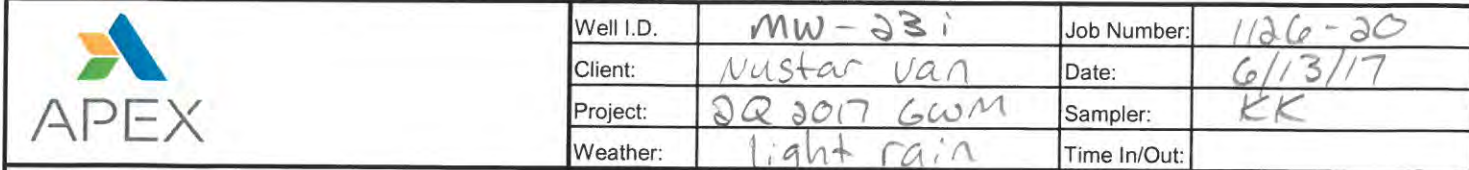 APEX
Well I.D. MW-23i Job Number: 1126-20
Client: Nustar Van Date: 6/13/17
Project: 2Q 2017 GWM Sampler: KK
Weather: light rain Time In/Out: